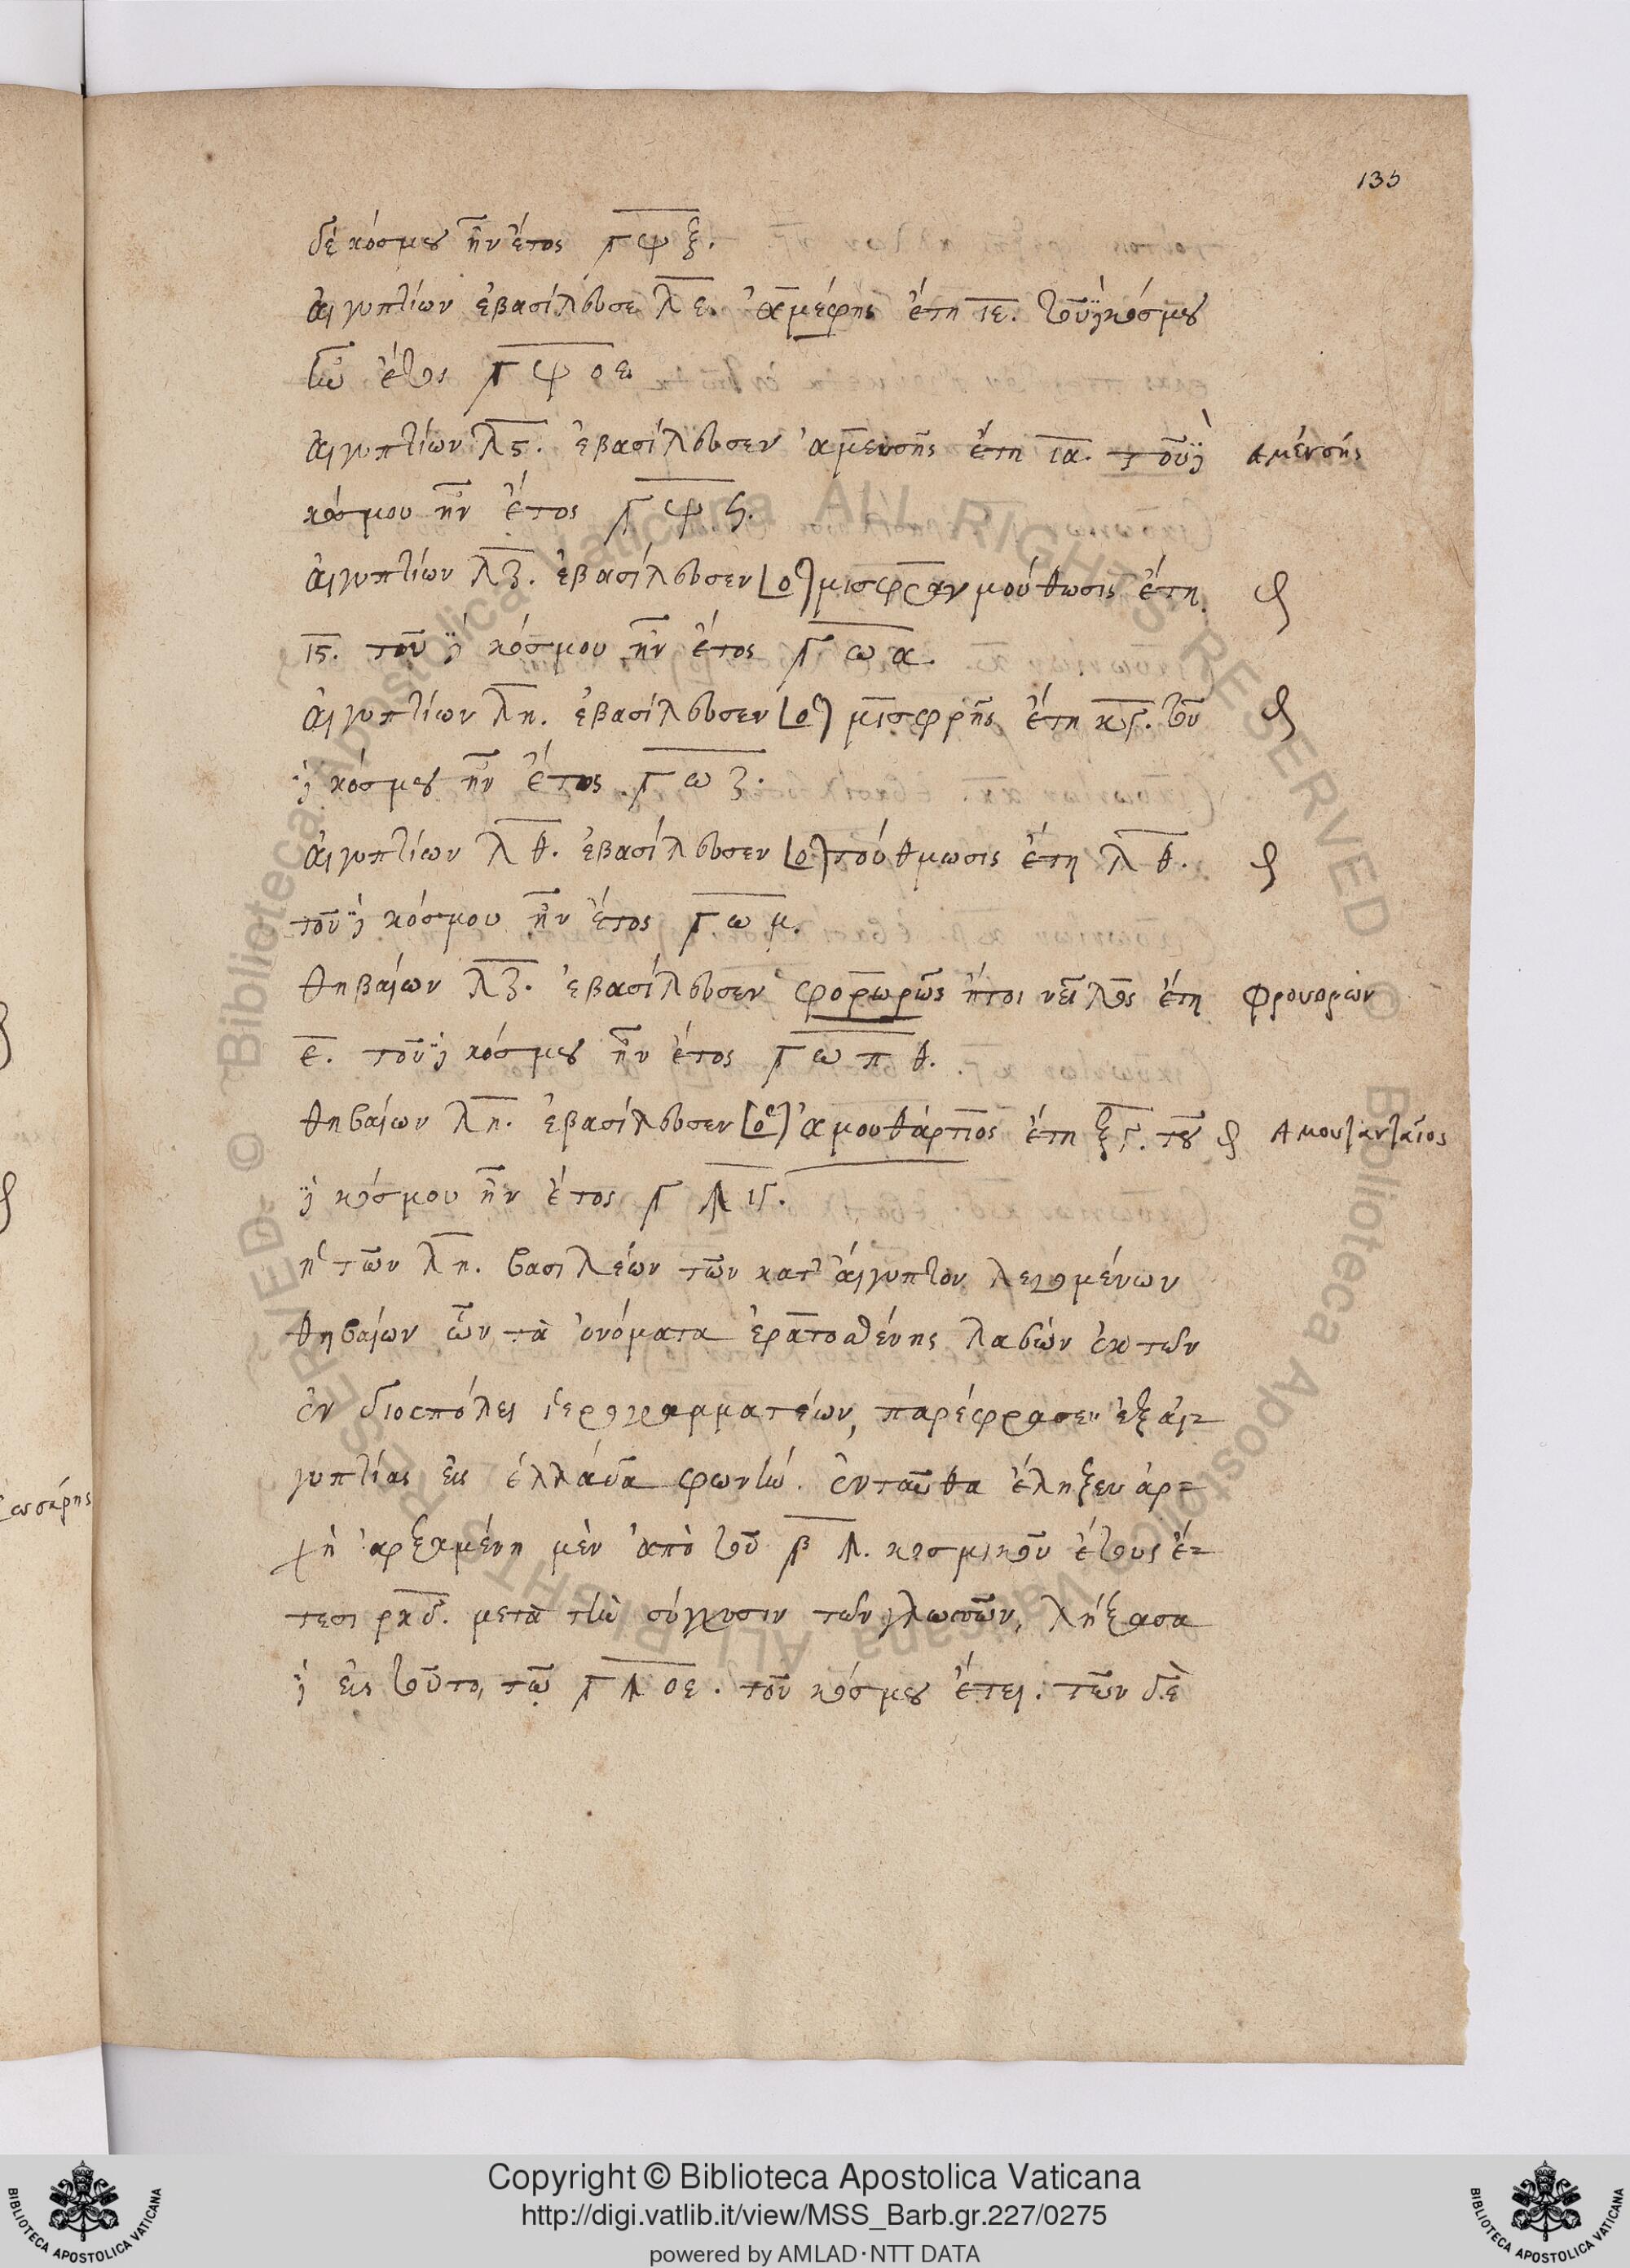 135
δὲ κόσμου ἦν ἔτος ͵γψξ.
Αἰγυπτίων ἐβασίλευσε λε. ἀμεφὴς ἔτη ιε. τοῦ δὲ κόσμου
ἦν ἔτος ͵γψοε
Αἰγυπτίων λς. ἐβασίλευσεν ἀμενσῆς ἔτη ια. τοῦ δὲ Αμένσής
κόσμου ἦν ἔτος ͵γψϟ.
Αἰγυπτίων λζ. ἐβασίλευσεν [ο] μισφραγμούθωσις ἔτη
ις. τοῦ δὲ κόσμου ἦν ἔτος ͵γωα.
Αἰγυπτίων λη. ἐβασίλευσεν [ο] μισφρῆς ἔτη κγ. τοῦ
δὲ κόσμου ἦν ἔτος ͵γωζ.
Αἰγυπτίων λθ. ἐβασίλευσεν [ο] τούθμωσις ἔτη λθ.
τοῦ δὲ κόσμου ἦν ἔτος ͵γωμ.
θηβαίων λζ. ἐβασίλευσεν φορωρῶς ἤτοι νεῖλος ἔτη Φρουορῶν
ε. τοῦ δὲ κόσμου ἦν ἔτος ͵γωπθ.
θηβαίων λη. ἐβασίλευσεν [ὁ] ἀμουθάρταιος ἔτη ξγ. του Αμουταρταῖος
δὲ κόσμου ἦν ἔτος ͵γϡιγ.
ἡ τῶν λη. βασιλέων τῶν κατ' αἴγυπτον λεγομένων
θηβαίων ὧν τὰ ὀνόματα ἐρατοσθένης λαβὼν ἐκ τῶν
ἐν διοσπόλει ἱερογραμματέων, παρέφρασεν ἐξ αἰ-
γυπτίας εἰς ἑλλάδα φωνὴν. ἐνταῦθα ἔληξεν ἀρ-
χὴ ἀρξαμένη μὲν ἀπὸ τοῦ ͵βϡ. κοσμικοῦ ἔτους ἔ-
τεσι ρκδ. μετὰ τὴν σύγχυσιν τῶν γλωσσῶν, λήξασα
δὲ εἰς τοῦτο, τῷ ͵γϡοε. τοῦ κόσμου ἔτει. τῶν δὲ
Copyright © Biblioteca Apostolica Vaticana
http://digi.vatlib.it/view/MSS_Barb.gr.227/0275
powered by AMLAD·NTT DATA